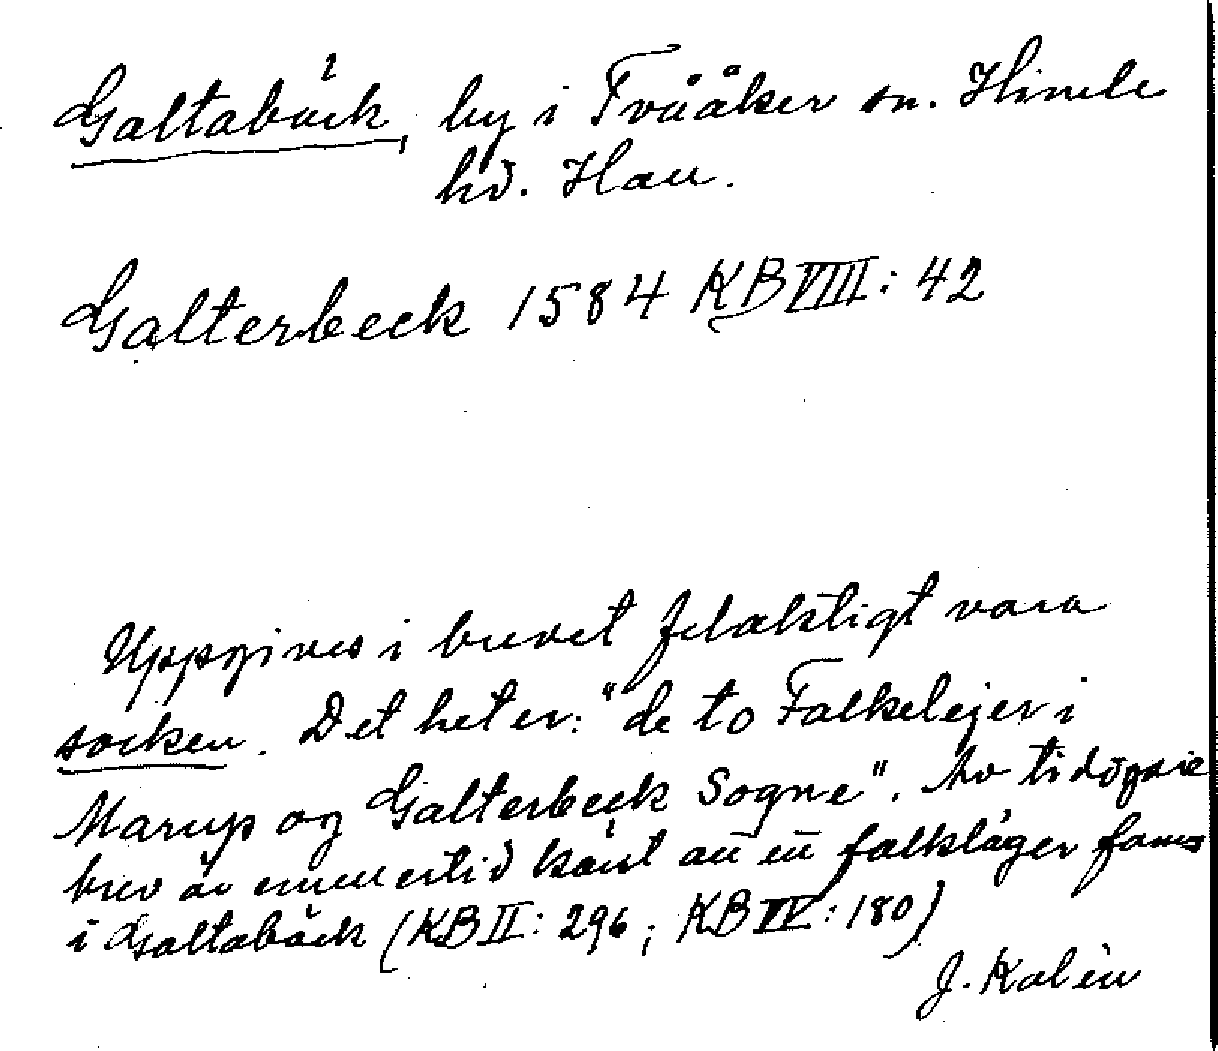 Galtabäck, by i Tvååker sn. Himle
hd. Hall.
Galterbeck 1584 KB VIII: 42
Uppgives i brevet felaktigt vara
socken. Det heter: "de to Falkelejer i
Marup og Galterbeck Sogne". Av tidigare
brev är emellertid känt att ett falkläger fanns
i Galtabäck (KB II: 296; KB IV: 180)
J. Kalén